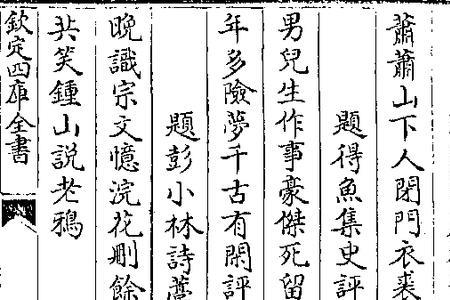 蕭蕭山下人閉門衣裘
題得魚集史評
男兒生作事豪傑死留
年多險夢千古有閑評
題彭小林詩藁
晚識宗文憶浣花刪餘
共笑鍾山說老鴉
欽定四庫全書